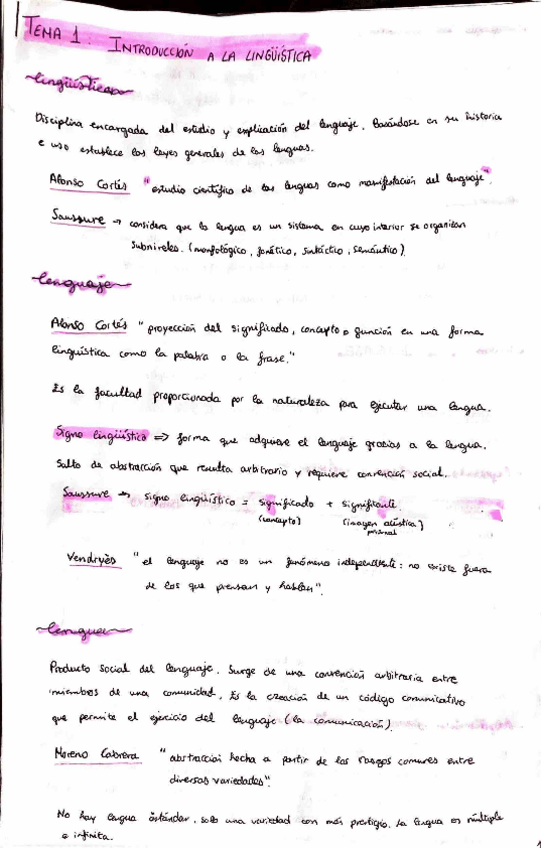 TEMA 1: INTRODUCCIÓN A LA LINGÜÍSTICA
Lingüística
Disciplina encargada del estudio y explicación del lenguaje. Basándose en su historia
e uso establece las leyes generales de las lenguas.
Alonso Cortés "estudio científico de las lenguas como manifestación del lenguaje"
Saussure → considera que la lengua es un sistema en cuyo interior se organizan
subniveles. (morfológico, fonético, sintáctico, semántico)
Lenguaje
Alonso Cortés "proyección del significado, concepto o función en una forma
lingüística como la palabra o la frase."
Es la facultad proporcionada por la naturaleza para ejecutar una lengua.
Signo lingüístico => forma que adquiere el lenguaje gracias a la lengua.
Salto de abstracción que resulta arbitrario y requiere convención social.
Saussure → signo lingüístico = significado + significante.
(concepto) (imagen acústica)
Vendryès "el lenguaje no es un fenómeno independiente: no existe fuera
de los que piensan y hablan".
Lengua
Producto social del lenguaje. Surge de una convención arbitraria entre
miembros de una comunidad. Es la creación de un código comunicativo
que permite el ejercicio del lenguaje (la comunicación).
Moreno Cabrera "abstracción hecha a partir de los rasgos comunes entre
diversas variedades".
No hay lengua estándar, solo una variedad con más prestigio. La lengua es múltiple
e infinita.